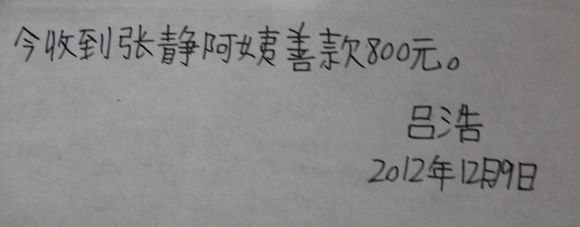 今收到张静阿姨善款800元。
吕浩
2012年12月9日